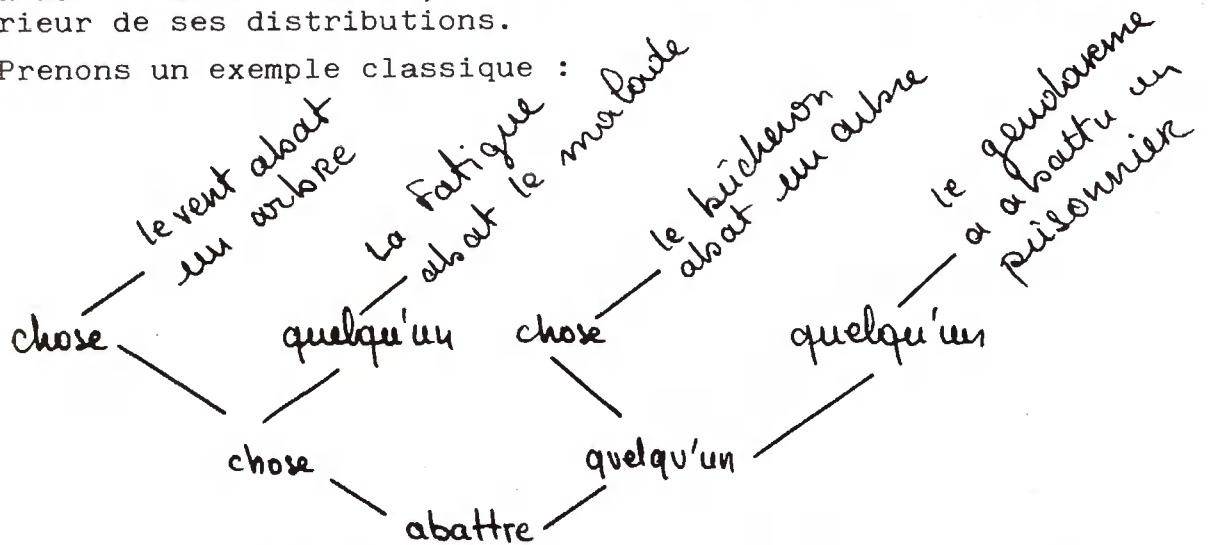 rieur de ses distributions.
Prenons un exemple classique :
le vent abat
un arbre
La Fatigue
abat le malade
le bûcheron
abat un arbre
le gendarme
a abattu un
prisonnier
chose
quelqu'un
chose
quelqu'un
chose
quelqu'un
abattre